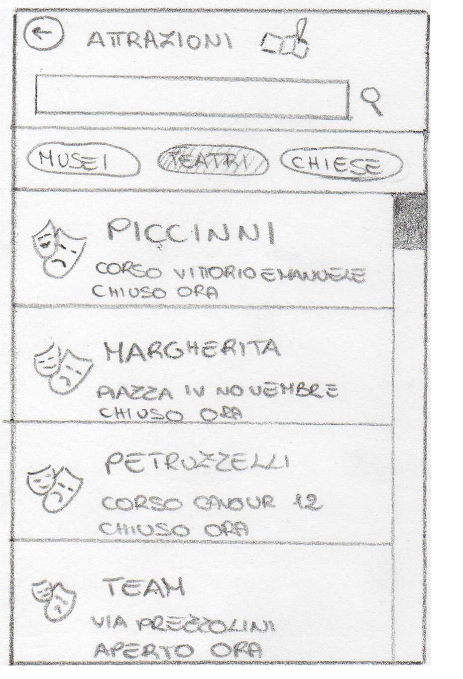 ATTRAZIONI
MUSEI TEATRI CHIESE
PICCINNI
CORSO VITTORIO EMANUELE
CHIUSO ORA
MARGHERITA
PIAZZA IV NOVEMBRE
CHIUSO ORA
PETRUZZELLI
CORSO CAVOUR 12
CHIUSO ORA
TEAM
VIA PREZZOLINI
APERTO ORA